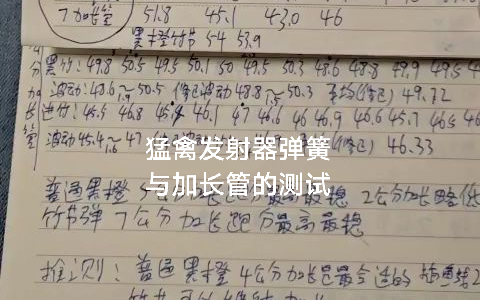 7加长管 51.8 45.1 43.0 46
黑橙竹节 54 53.9
黑竹: 49.8 50.5 49.5 50.1 50 49.5 50.3 48.6 48.8 49.9 49.5
波动: 48.6~50.5 波动48.8~50.3 49.72
45.5 46.8 45.4 46.1 47 46.6 46 46.9 46.6 45.7 46.5 46
波动45.4~47 46.33
猛禽发射器弹簧
与加长管的测试
普通黑橙 5公分加长跑分最高最稳 2公分加长略低
竹节弹 7公分加长跑分最高最稳
推测: 普通黑橙4公分加长是最合适的